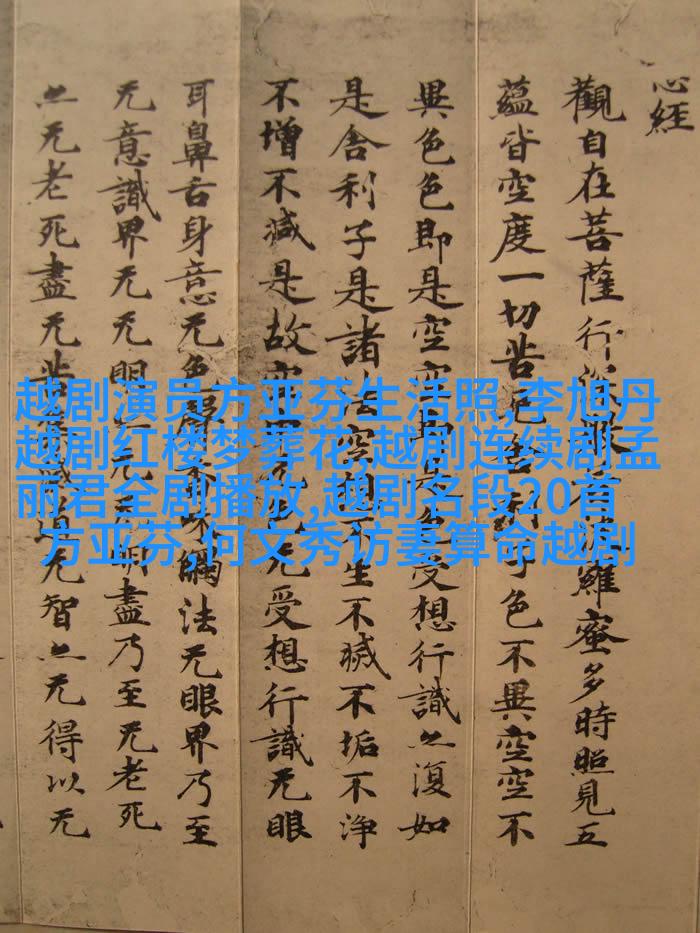 心經
觀自在菩薩行深般若波羅蜜多時照見五
蘊皆空度一切苦厄舍利子色不異空空不
異色色即是空空即是色受想行識亦復如
是舍利子是諸法空相不生不滅不垢不淨
不增不減是故空中无色无受想行識无眼
耳鼻舌身意无色聲香味觸法无眼界乃至
无意識界无无明亦无无明盡乃至无老死
亦无老死盡无苦集滅道无智亦无得以无
越剧演员方亚芬生活照,李旭丹
越剧红楼梦葬花,越剧连续剧孟
丽君全剧播放,越剧名段20首
方亚芬,何文秀访妻算命越剧